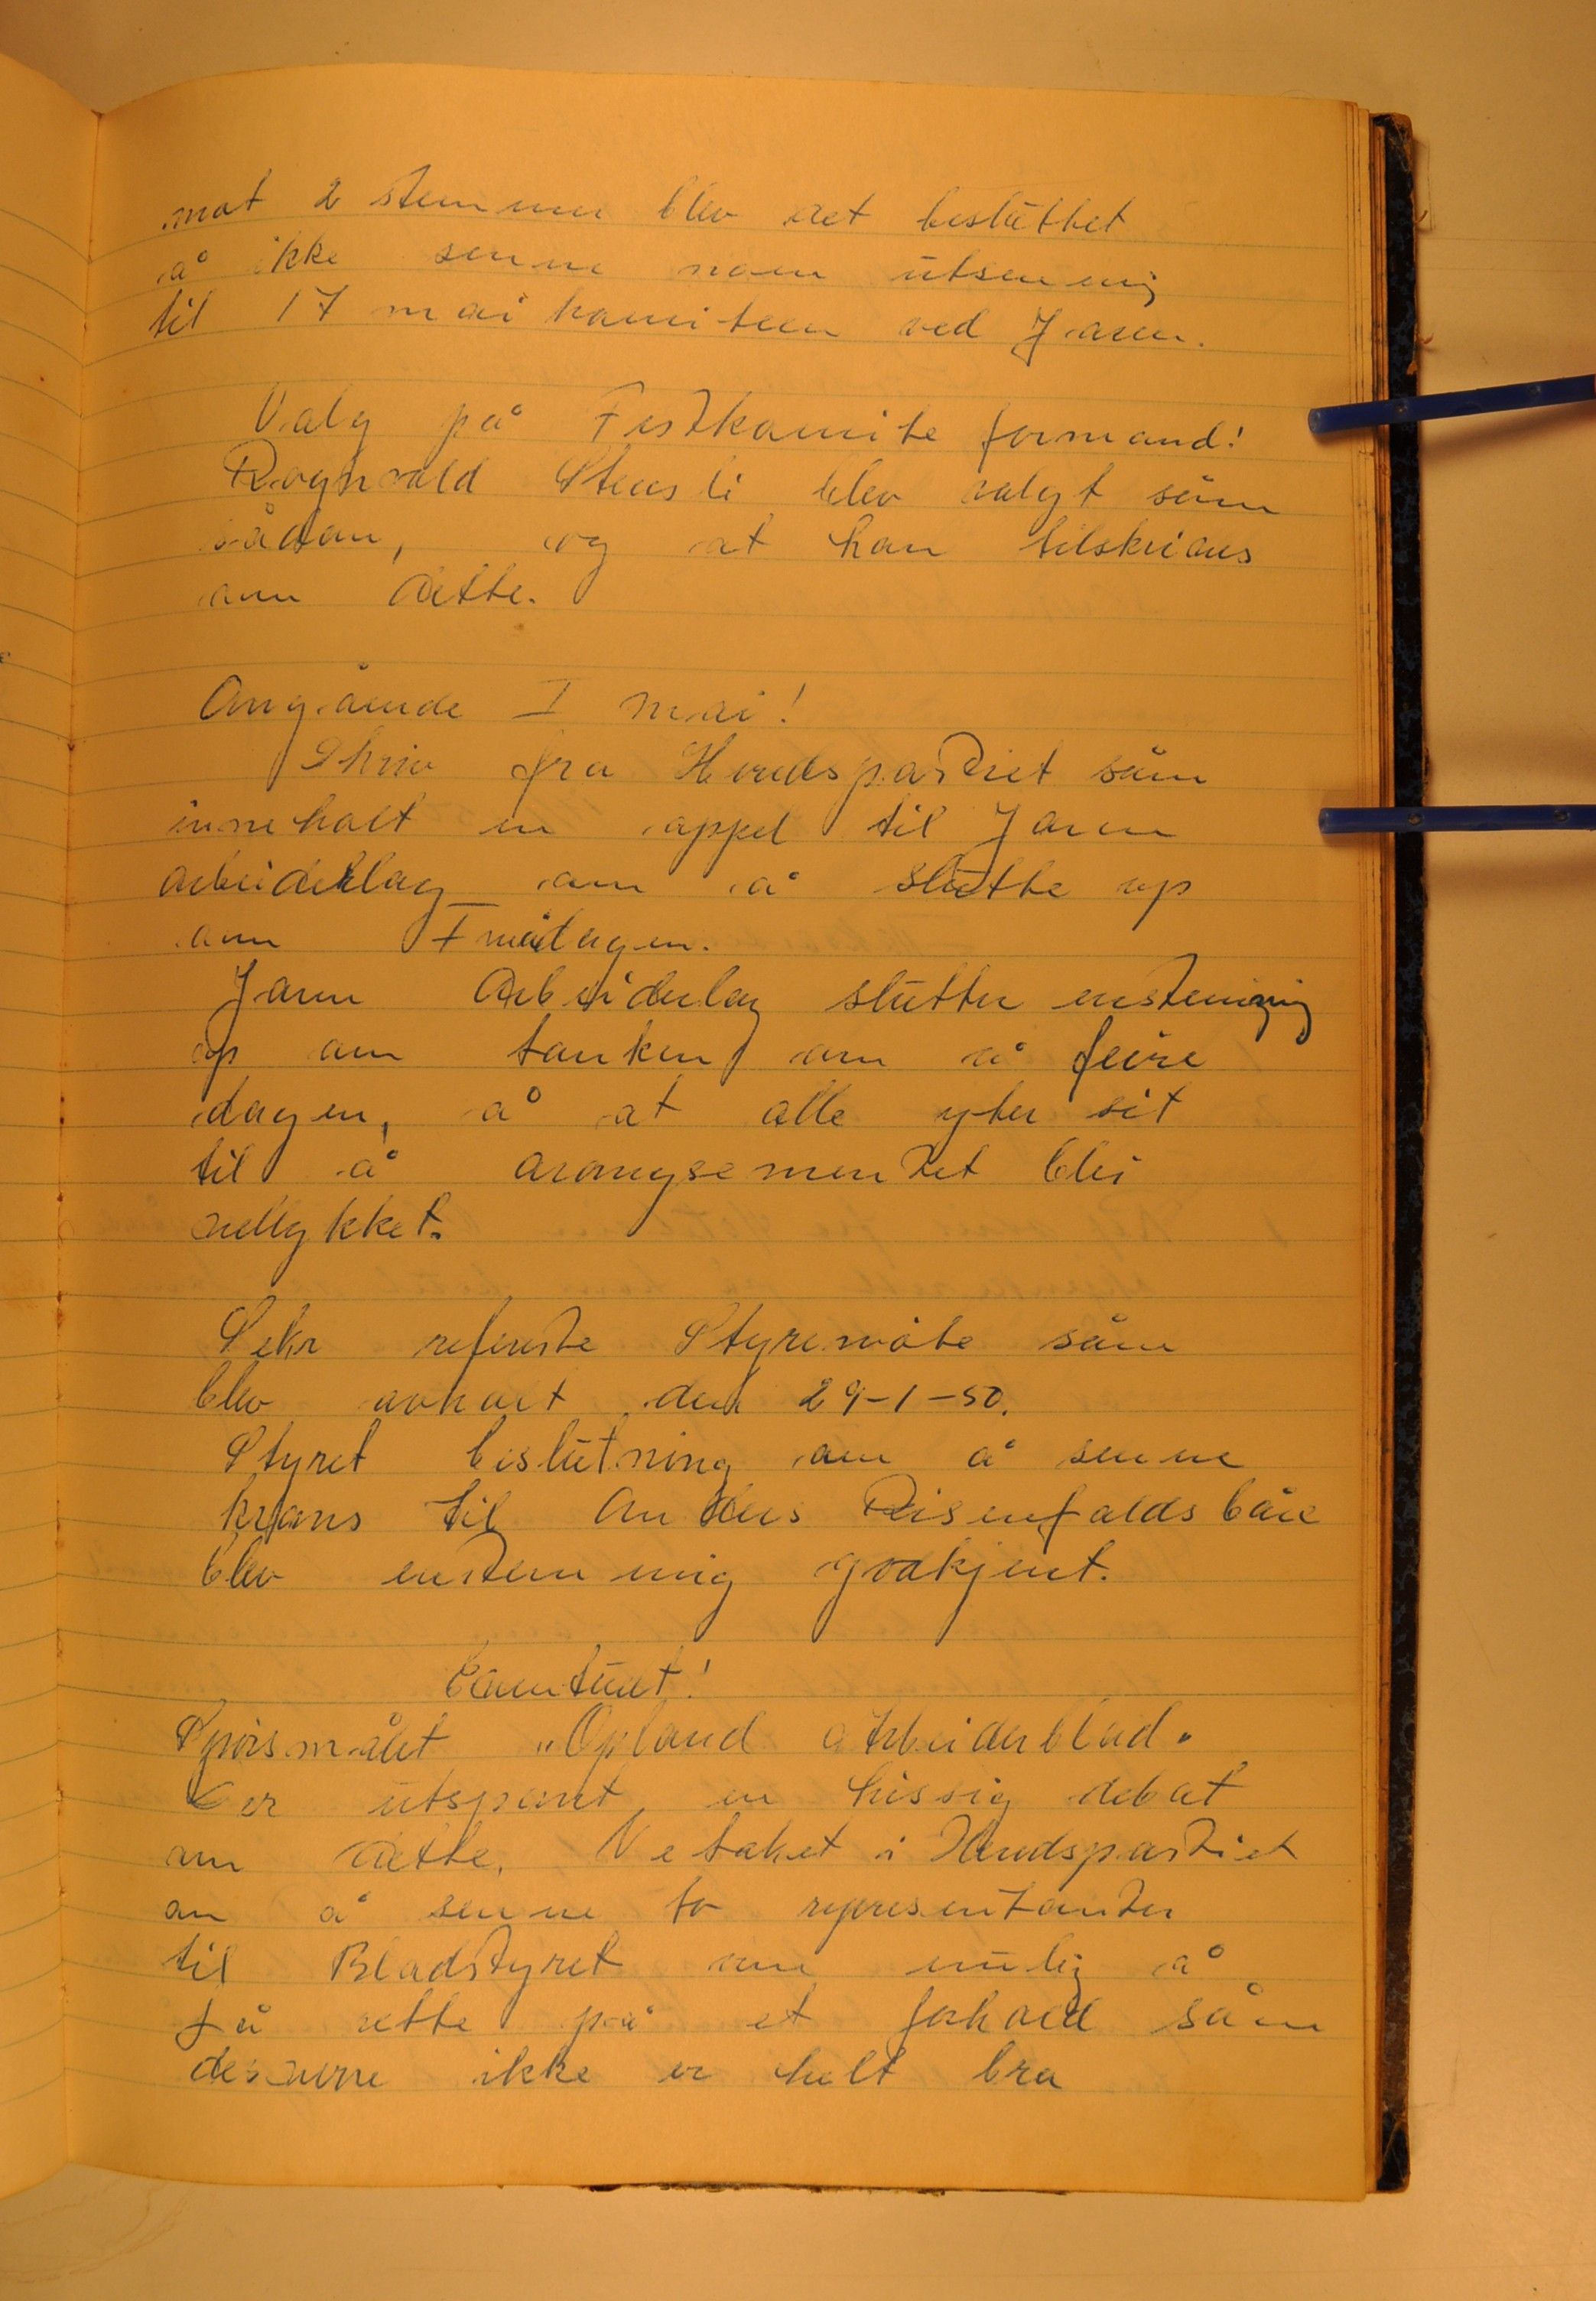 mot 2 stemmer blev det beslüttet
å ikke senne noen ütsenning
til 17 mai komiteen ved Jaren.
Valg på Festkomite formand!
Rognvald Stensli blev valgt såm
sådan, og at han tilskrives
om dette.
Angående I mai!
Skriv fra Heredspartiet såm
innehalt en appel til Jaren
arbeiderlag om å slütte op
om I maidagen.
Jaren Arbeiderlag slütter enstemmig
op om tanken om å feire
dagen, å at alle yter sit
til å arangsementet blei
vellykket.
Sekr refererte Styremöte såm
blev avholt den 29-1-50.
Styret beslütning om å senne
krans til Anders Risenfalds båre
blev enstemmig godkjent.
Eventüelt!
Spörsmålet "Opland Arbeiderblad"
er ütspant en hissig debat
om dette. Vetaket i Heredspartiet
om å senne to representanter
til Bladstyret om mülig å
få rette på et forhold såm
desverre ikke er helt bra